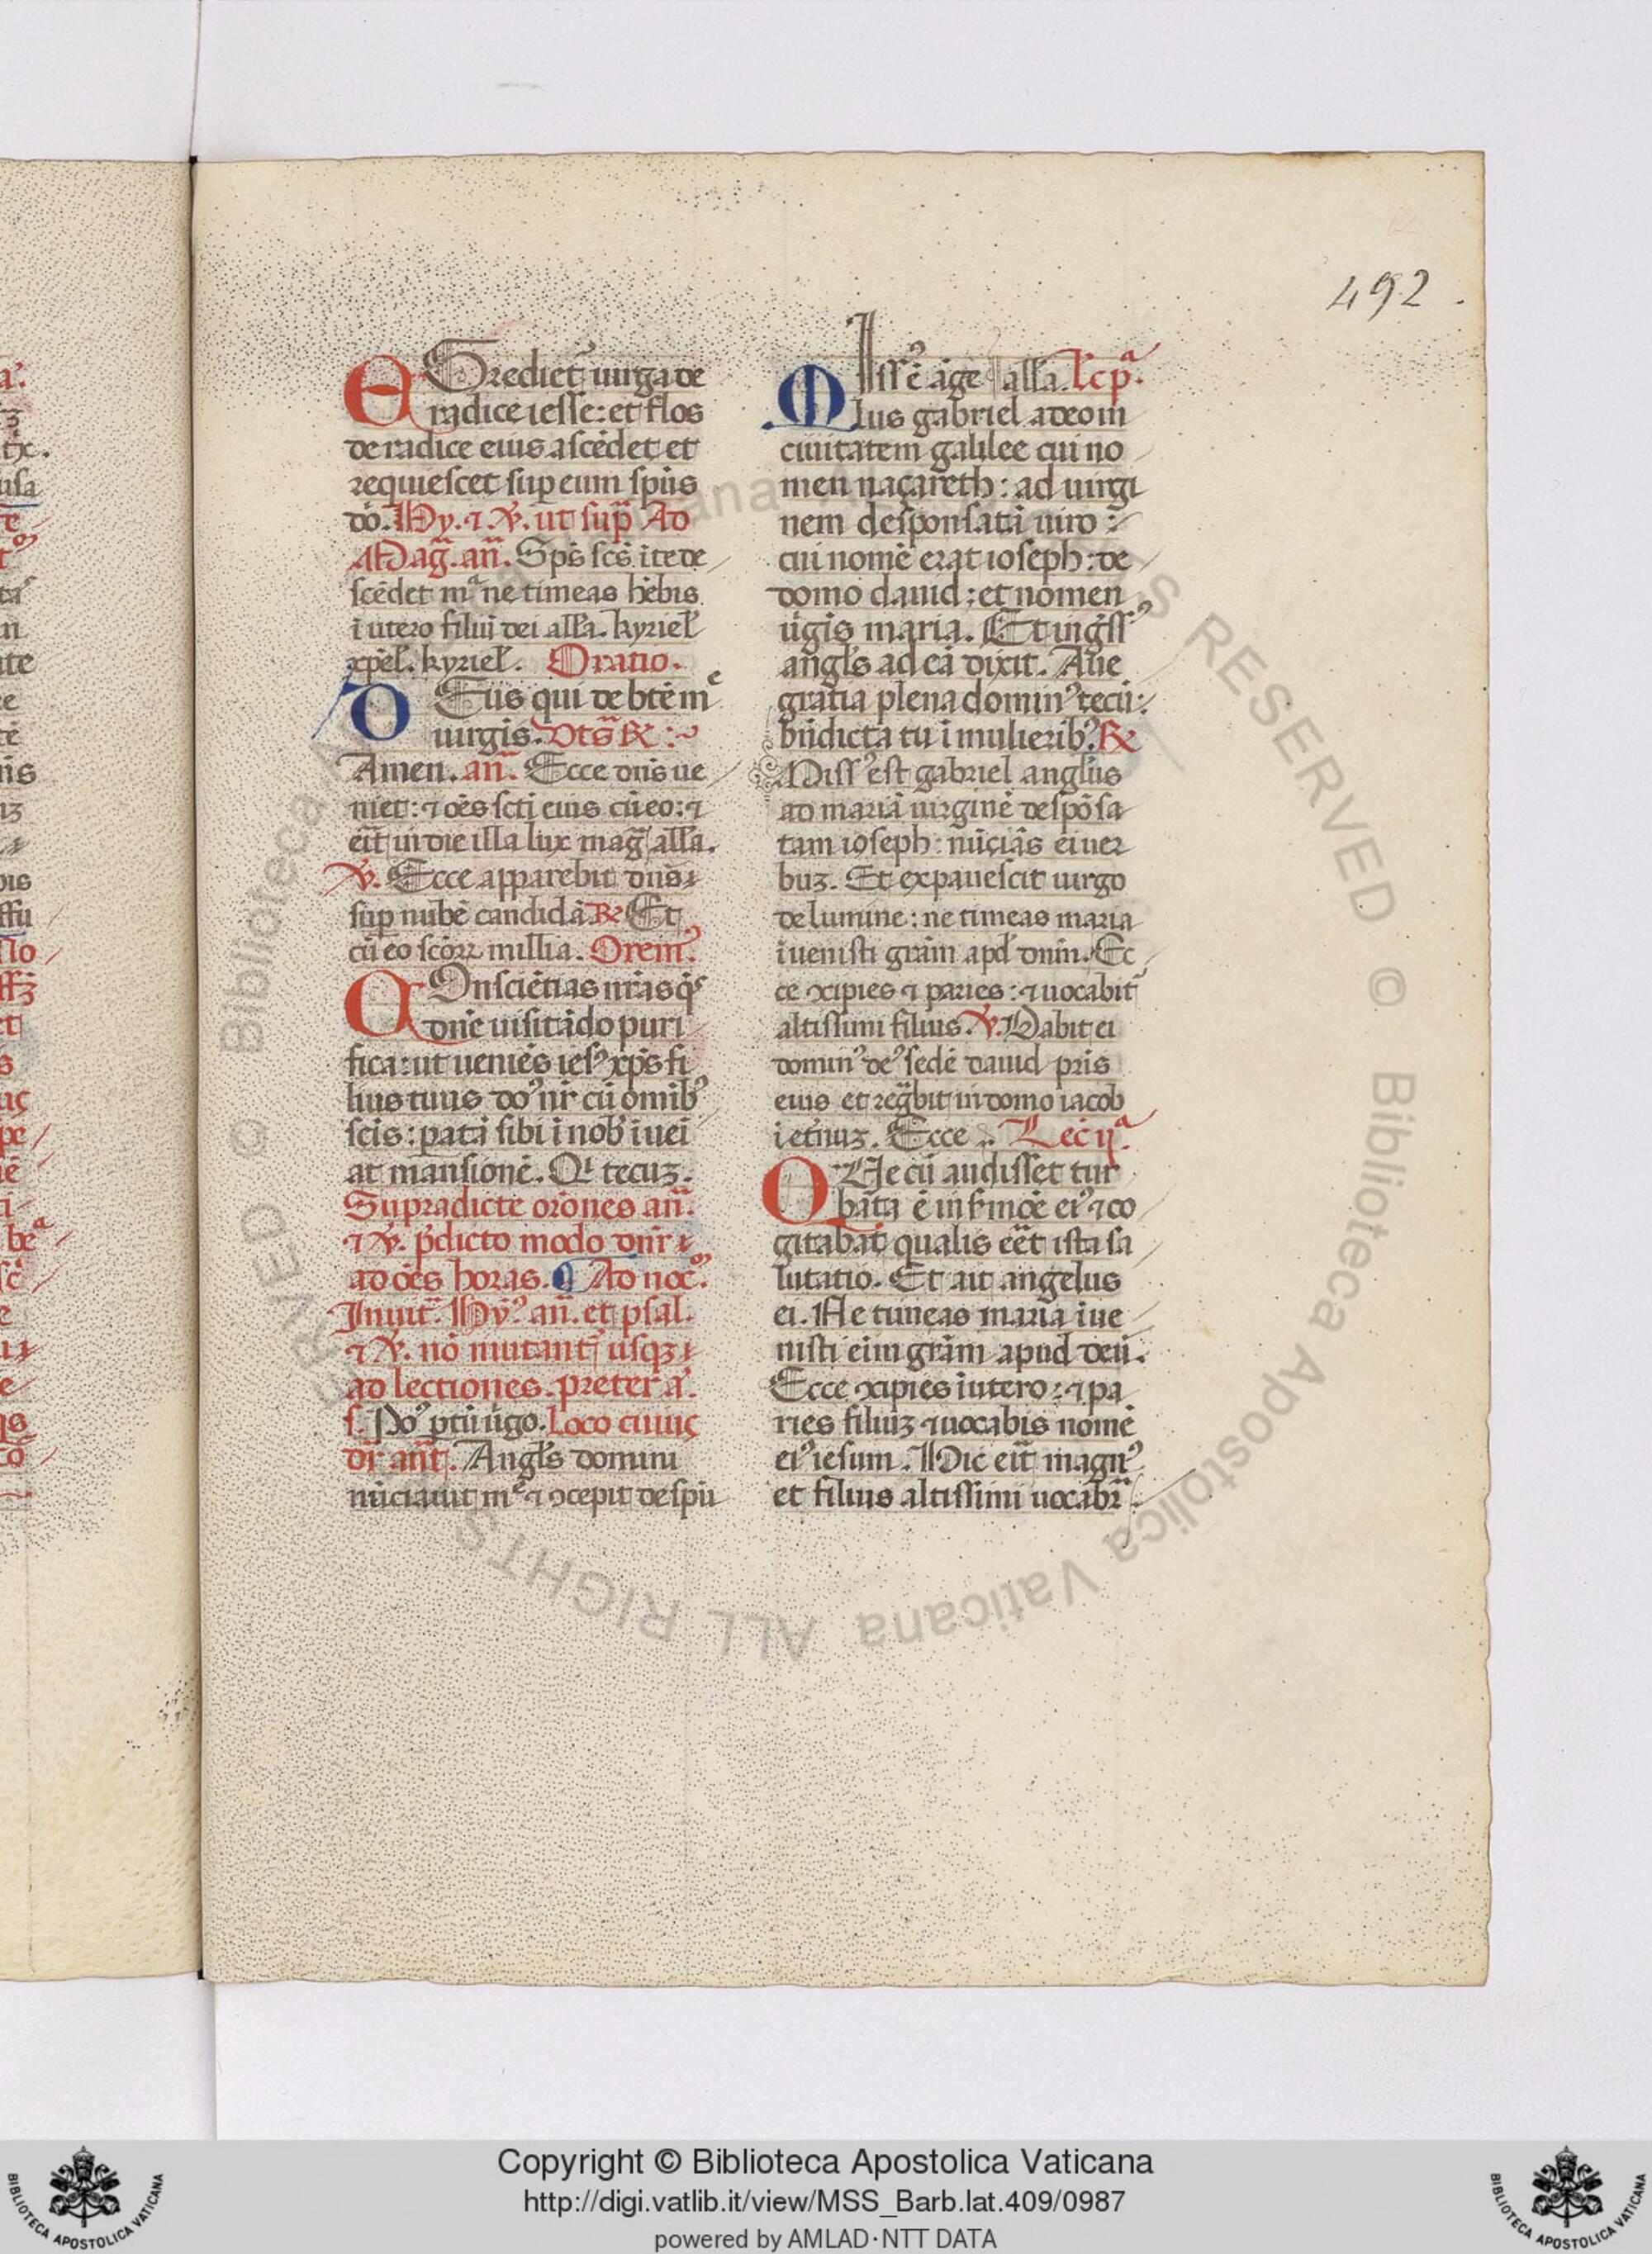 492.
EGrediet᷑ uirga de
radice iesse: et flos
de radice eius ascẽdet et
requiescet sup eum spũs
dõ. Hy. ⁊ ℣. ut sup̃ Ad
Mag̃. añ. Sp̃s sc̃s ĩ te de
scẽdet mͣ ne timeas hẽbis
ĩ utero filiũ dei all̃a. kyriel̃
xp̃el̃. kyriel̃. Oratio.
DEus qui de btẽ mͤ
uirgĩs. Vts̃ ℟ :~
Amen. añ. Ecce dñs ue
niet: ⁊ oẽs sc̃ti eius cũ eo: ⁊
eit̃ in die illa lux mag̃ all̃a.
℣. Ecce apparebit dñs
sup nubẽ candidã ℟ Et
cũ eo sc̃oꝝ millia. Orem᷒.
COnsciẽtias nr̃as q̃s
dñe uisitãdo puri
fica: ut ueniẽs ies᷒ xp̃s fi
lius tuus do᷒ nr̃ cũ omib᷒
sc̃is: patã sibi ĩ nob̃ ĩuei
at mansionẽ. Qͥ tecuꝫ.
Supradicte orõnes añ.
⁊ ℣. p̃dicto modo dñr
ad oẽs horas. ¶ Ad noc᷒.
Inuit̃. Hy᷒. añ. et psal.
⁊ ℣. nõ mutant᷑ usqꝫ
ad lectiones. preter a᷒.
s. Po᷒ ptũ ũgo. Loco cuiuς
dr̃ ant̃. Angl̃s domini
nũciauit mͤ ⁊ ↄcepit de spũ
Miss᷒ ẽ ãge all̃a. Lc̃ pͣ.
Ius gabriel a deo in
ciuitatem galilee cui no
men naçareth: ad uirgi
nem desponsatã uiro :
cui nomẽ erat ioseph: de
domo dauid: et nomen
ũgĩs maria. Et ing̃ss᷒
angl̃s ad eã dixit. Aue
gratia plena domin᷒ tecũ:
bñdicta tu ĩ mulierib᷒. ℟
Miss᷒ est gabriel angl̃us
ad mariã uirginẽ despõsa
tam ioseph: nũciãs ei uer
buꝫ. Et expauescit uirgo
de lumine: ne timeas maria
ĩuenisti gr̃am apd̃ dnm̃. Ec
ce ↄcipies ⁊ paries: ⁊ uocabit᷑
altissimi filius. ℣. Dabit ei
domin᷒ de᷒ sedẽ dauid pr̃is
eius et regb̃it in domo iacob
ĩ et̃nuꝫ. Ecce .. Lec̃ ijͣ.
QUe cũ audisset tur
bãta ẽ in s̃mõe ei᷒ ⁊ co
gitabat qualis eẽt ista sa
lutatio. Et ait angelus
ei. Ne timeas maria ĩue
nisti eĩm gr̃am apud deũ.
Ecce ↄcipies ĩ utero: ⁊ pa
ries filiuꝫ ⁊ uocabis nomẽ
ei᷒ iesum. Hic eit̃ magn᷒
et filius altissimi uocabr̃
Copyright © Biblioteca Apostolica Vaticana
http://digi.vatlib.it/view/MSS_Barb.lat.409/0987
powered by AMLAD·NTT DATA
BIBLIOTECA APOSTOLICA VATICANA
BIBLIOTECA APOSTOLICA VATICANA